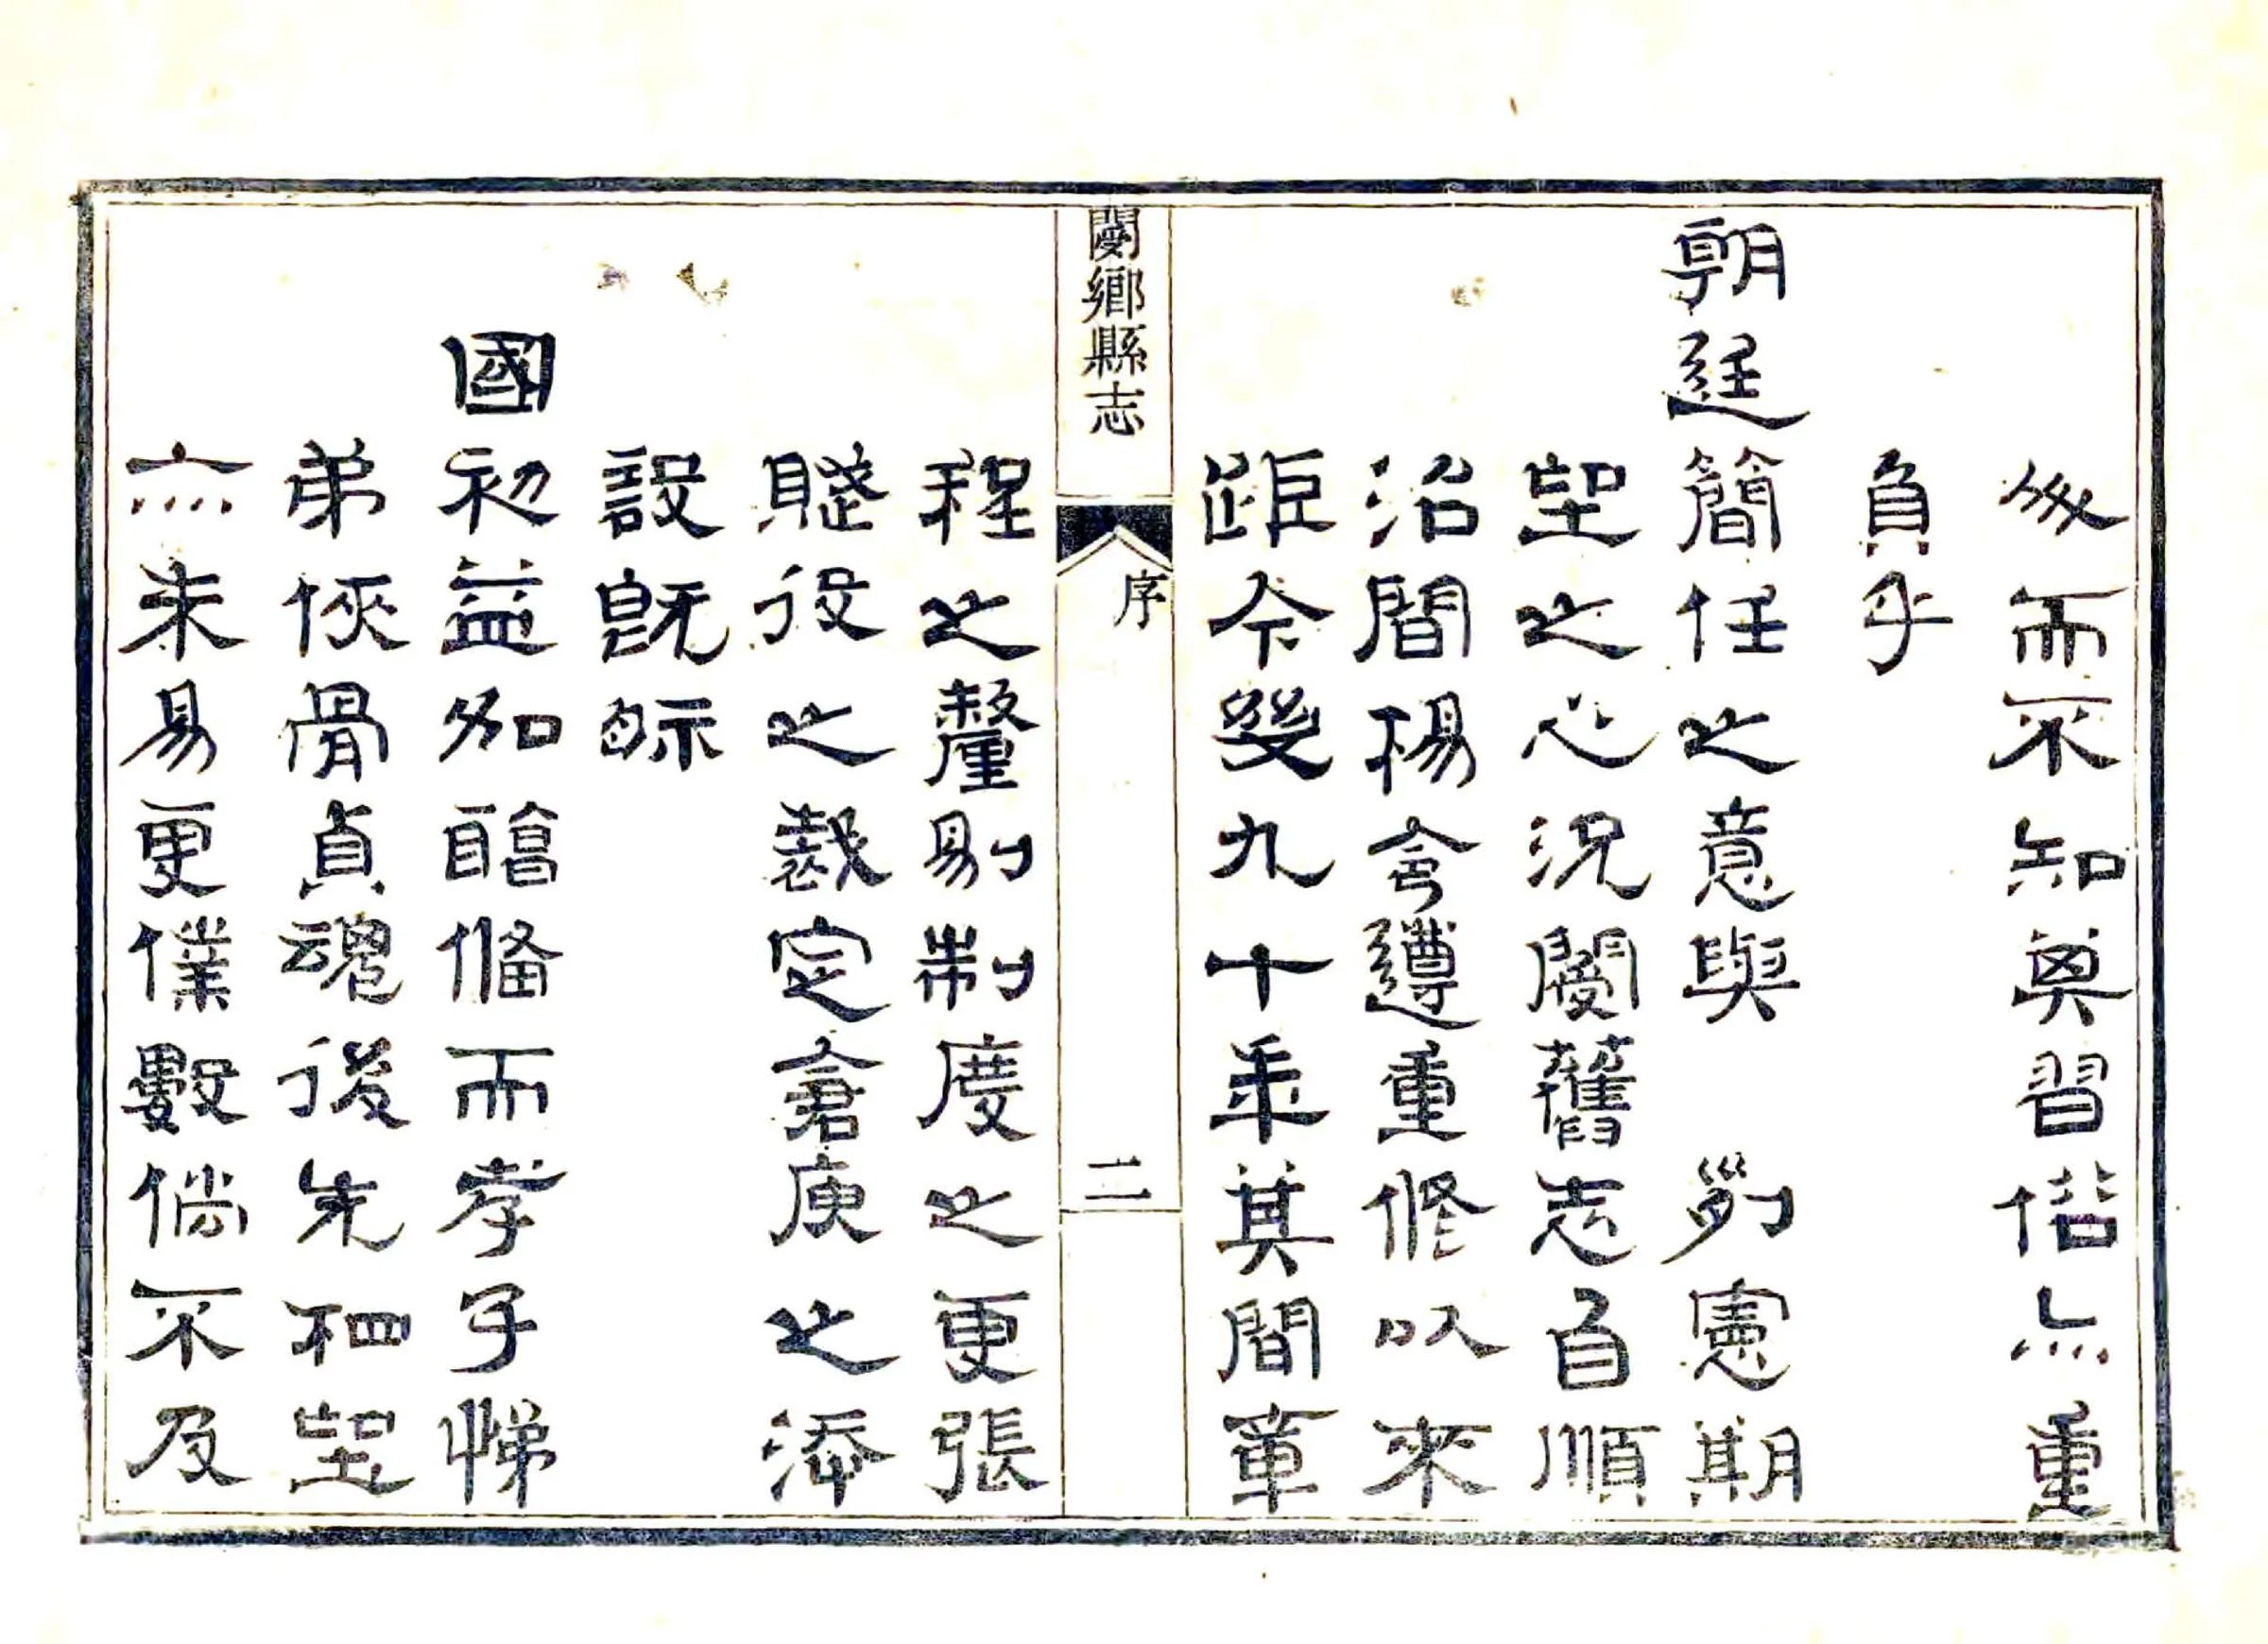 而不知習偕亦重
負乎
朝廷簡任之意與 列憲期
望之心況閿舊志自順
治間楊令遵重修以來
距今幾九十年其間章
閿鄉縣志 序 二
程之釐剔制度之更張
賦役之裁定倉庾之添
設既眎
國初益加備而孝子悌
弟俠骨貞魂後先相望
亦未易更僕數倘不及